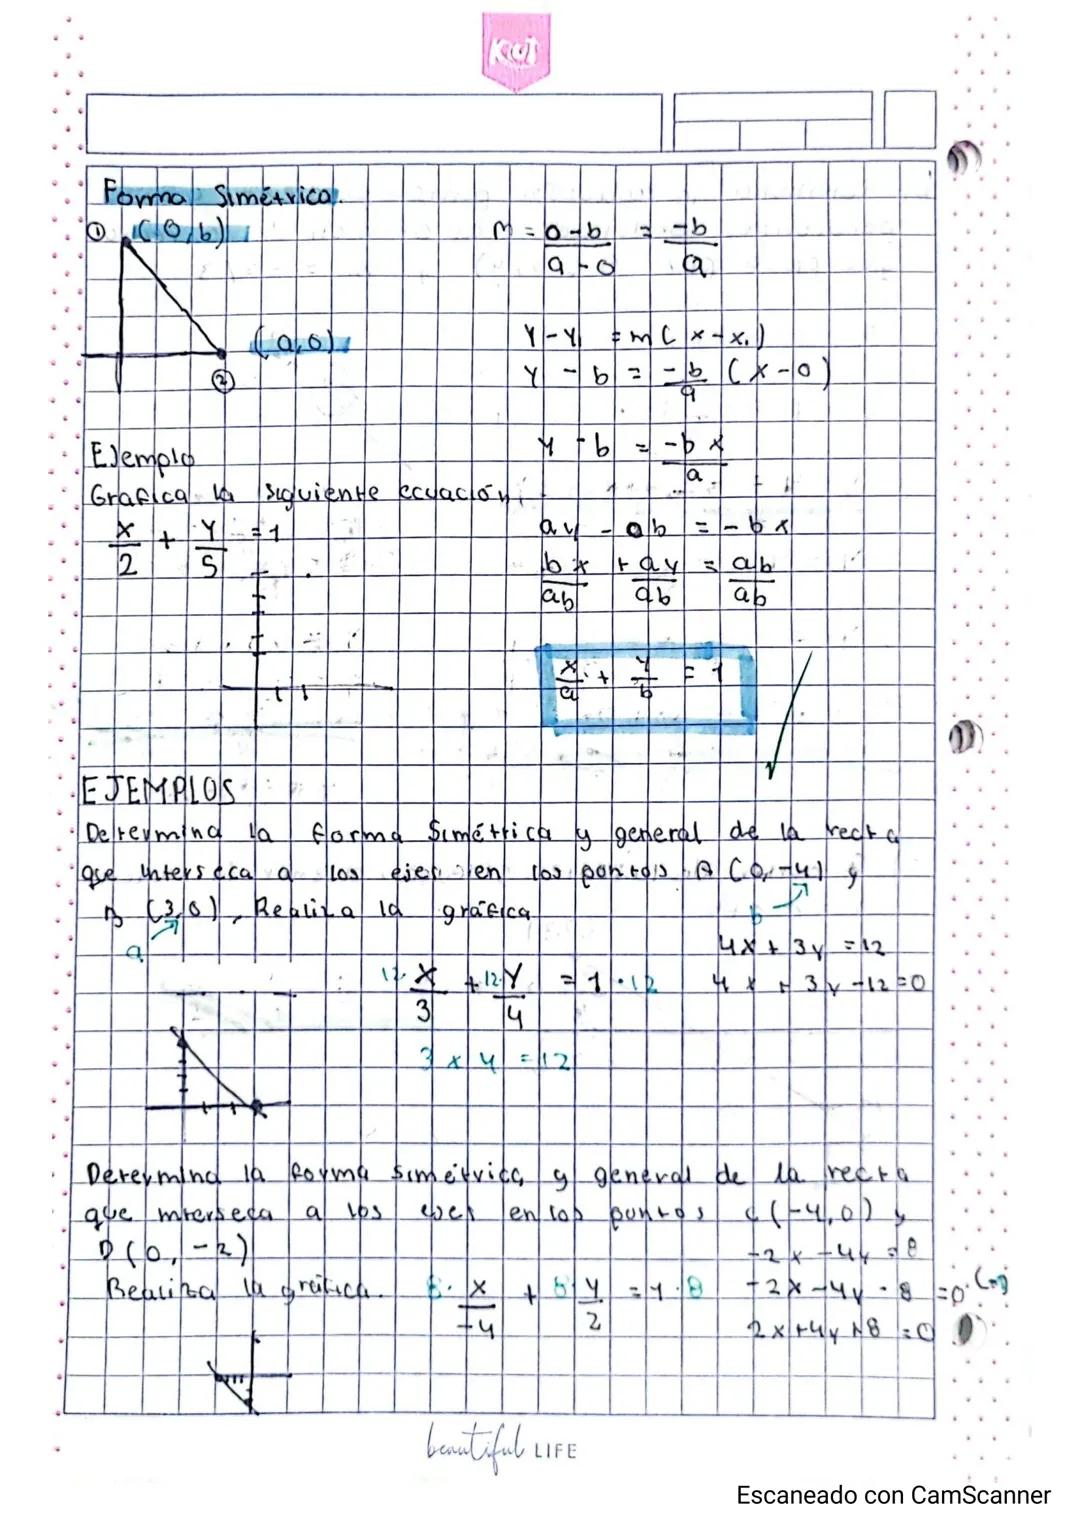 KUT
Forma Simétrica.
① (0,b)
m = 0-b / a-0 = -b / a
(a,0)
②
y-y₁ = m(x-x₁)
y - b = -b/a (x-0)
Ejemplo
y - b = -b x / a
Grafica la siguiente ecuación:
x/2 + y/5 = 1
ay - ab = -bx
bx/ab + ay/ab = ab/ab
x/a + y/b = 1
EJEMPLOS
Determina la forma simétrica y general de la recta
que interseca a los ejes en los puntos A (0,-4) y
B (3,0), Realiza la gráfica
b
a
4x + 3y = 12
12· x/3 + 12· y/4 = 1 · 12
4x + 3y - 12 = 0
3 x 4 = 12
Determina la forma simétrica y general de la recta
que interseca a los ejes en los puntos C (-4,0) y
D (0, -2)
-2x - 4y = 8
Realiza la gráfica.
8· x/-4 + 8· y/2 = 1 · 8
-2x - 4y - 8 = 0
2x + 4y + 8 = 0
beautiful LIFE
Escaneado con CamScanner